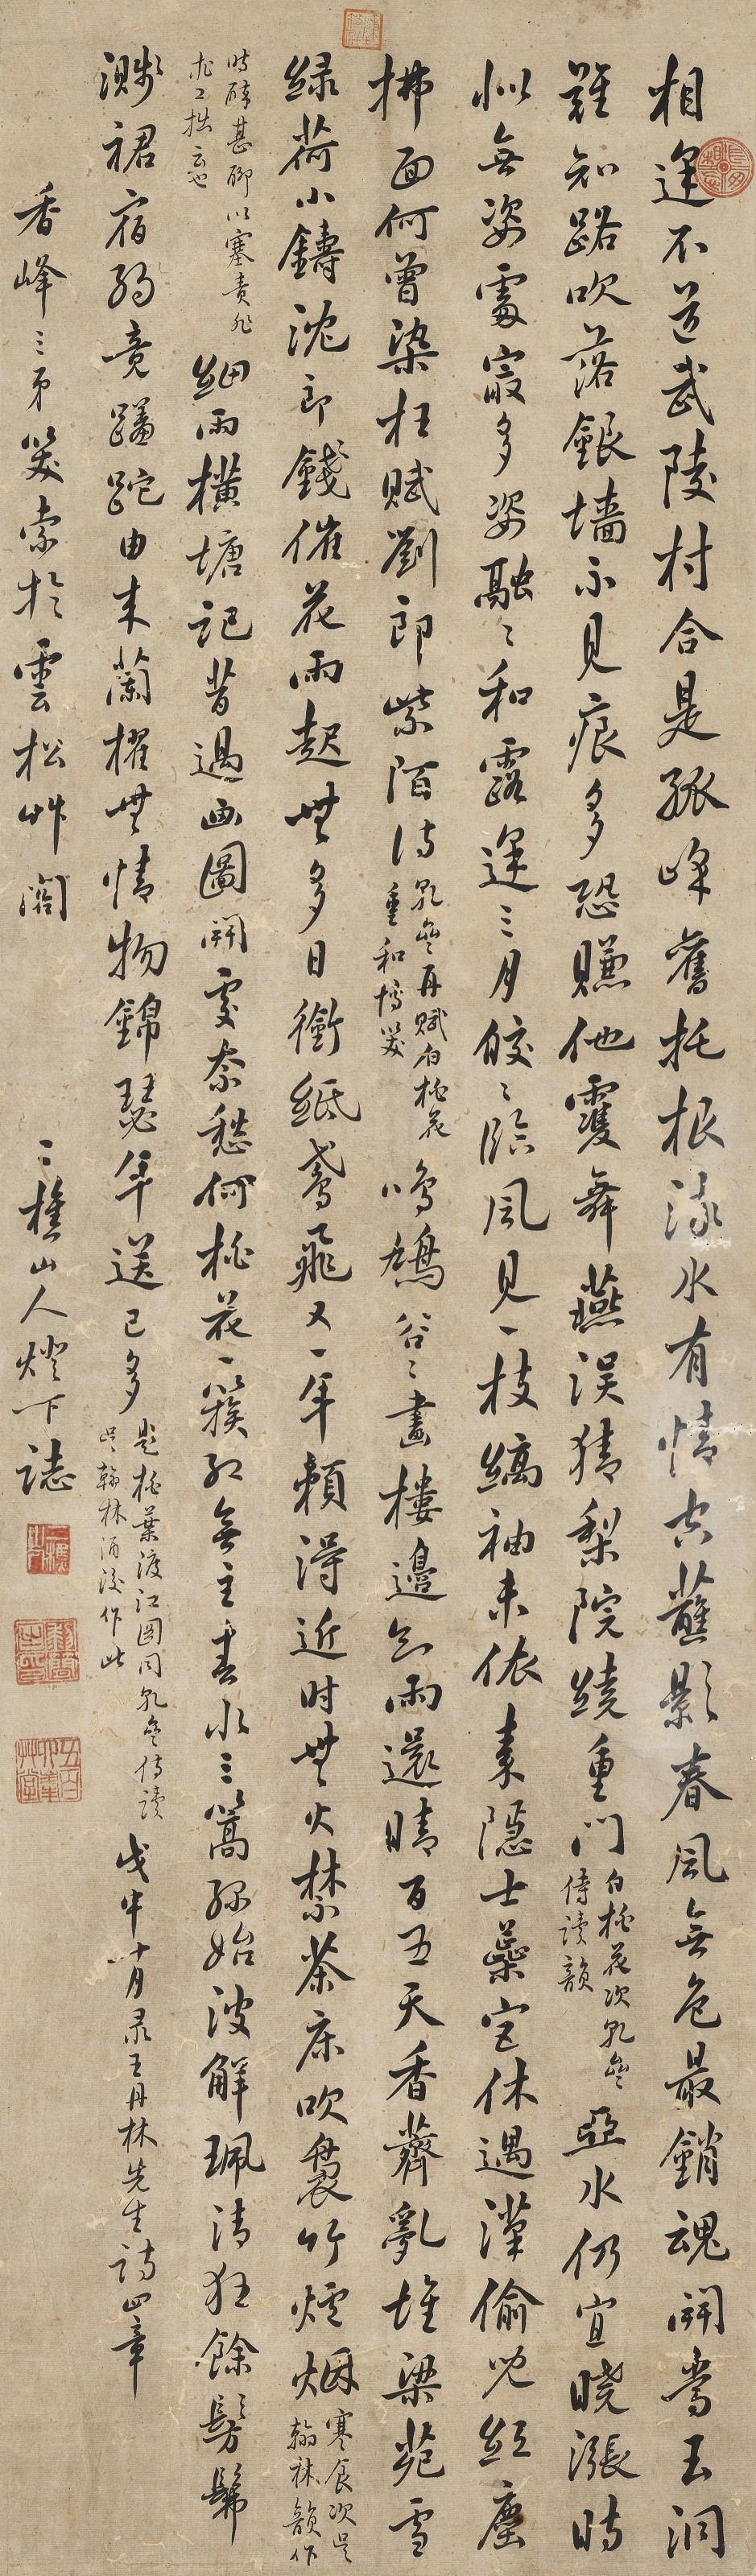 相逢不道武陵村合是孤峰舊托根流水有情空蘸影春風無色最銷魂開當玉洞
難知路吹落銀墻不見痕多恐賺他雙舞燕誤猜梨院繞重門
白桃花次乳崖
侍讀韻
亞水仍宜曉漲時
似無姿處最多姿融〻和露逢三月皎〻臨風見一枝縞袖未依素隱士藥宮休過漢偷兒紅塵
拂面何曾染枉賦劉郎紫陌詩
乳崖再賦白桃花
重和博笑
鳴鳩谷〻畫樓邊乞雨還晴百五天香薺亂堆梁苑雪
綠荷小鑄沈郎錢催花雨起無多日銜紙鳶飛又一年賴得近時無火禁茶床吹裊竹爐烟
寒食次吳
翰林韻作
時醉甚聊以塞責非
求工拙云也
細雨橫塘記昔過画圖開處奈愁何桃花一簇紅無主春水三篙綠始波解珮清狂餘髣髴
濺裙宿約竟蹉跎由来蘭櫂無情物錦瑟年年送已多
題桃葉渡江圖同乳崖侍讀
吳翰林酒後作此
戊申十月录王丹林先生詩四章
香峰三弟笑索於雲松艸閣
二樵山人燈下誌